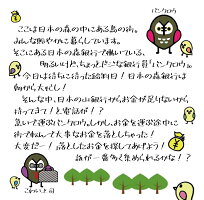 バンクロウ
ここは日本の森の中にある鳥の街。
みんな賑やかに暮らしています。
そこにある日本の森銀行で働いている、
明るいけど、ちょっとドジな銀行員「バンクロウ」。
今日は待ちに待った給料日！日本の森銀行は
朝から大忙し！
そんな中、日本の山銀行からお金が足りないから
持ってきて！と電話が！？
急いで運ぶバンクロウ。しかし、お金を運ぶ途中に
街でわんさ大事なお金を落としちゃった！
大変だー！落としたお金を探してあげよう！
誰が一番多く集められるかな！？